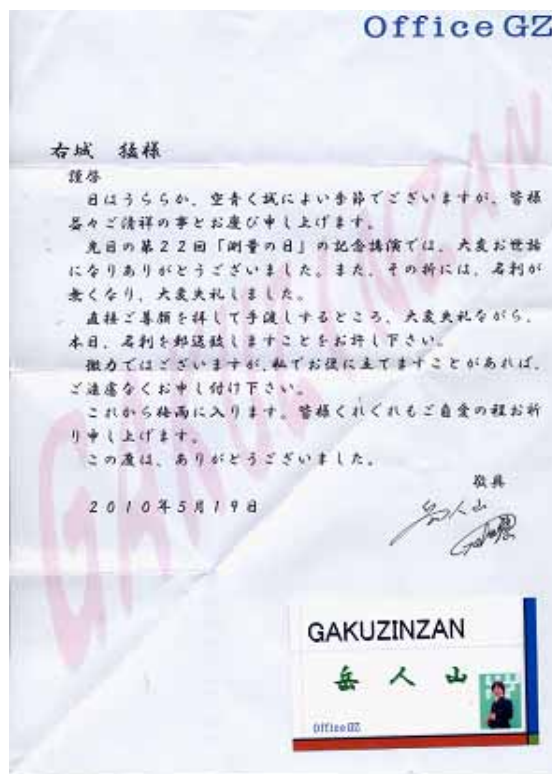 Office GZ
右城 猛様
謹啓
日はうららか、空青く誠によい季節でございますが、皆様
益々ご清祥の事とお慶び申し上げます。
先日の第22回「測量の日」の記念講演では、大変お世話
になりありがとうございました。また、その折には、名刺が
無くなり、大変失礼しました。
直接ご尊顔を拝して手渡しするところ、大変失礼ながら、
本日、名刺を郵送致しますことをお許し下さい。
微力ではございますが、私でお役に立てますことがあれば、
ご遠慮なくお申し付け下さい。
これから梅雨に入ります。皆様くれぐれもご自愛の程お祈
り申し上げます。
この度は、ありがとうございました。
敬具
2010年5月19日
岳人山
GAKUZINZAN
GAKUZINZAN
岳人山
Office GZ